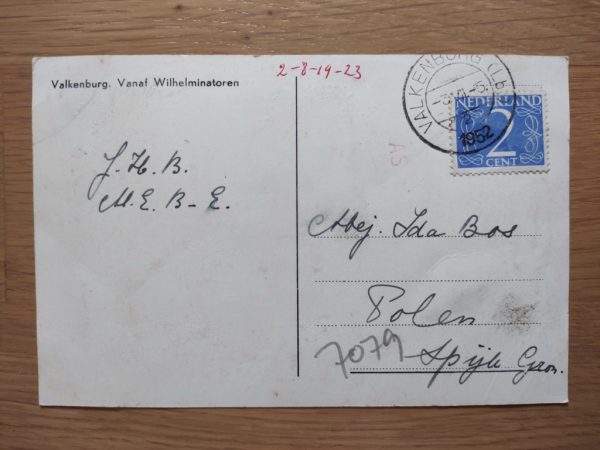 Valkenburg. Vanaf Wilhelminatoren
2-8-19-23
VALKENBURG (Lb)
1952
NEDERLAND
2
CENT
AS
J. H. B.
M. E. B - E.
Mej. Ida Bos
Polen
7079
Spijk Gron.